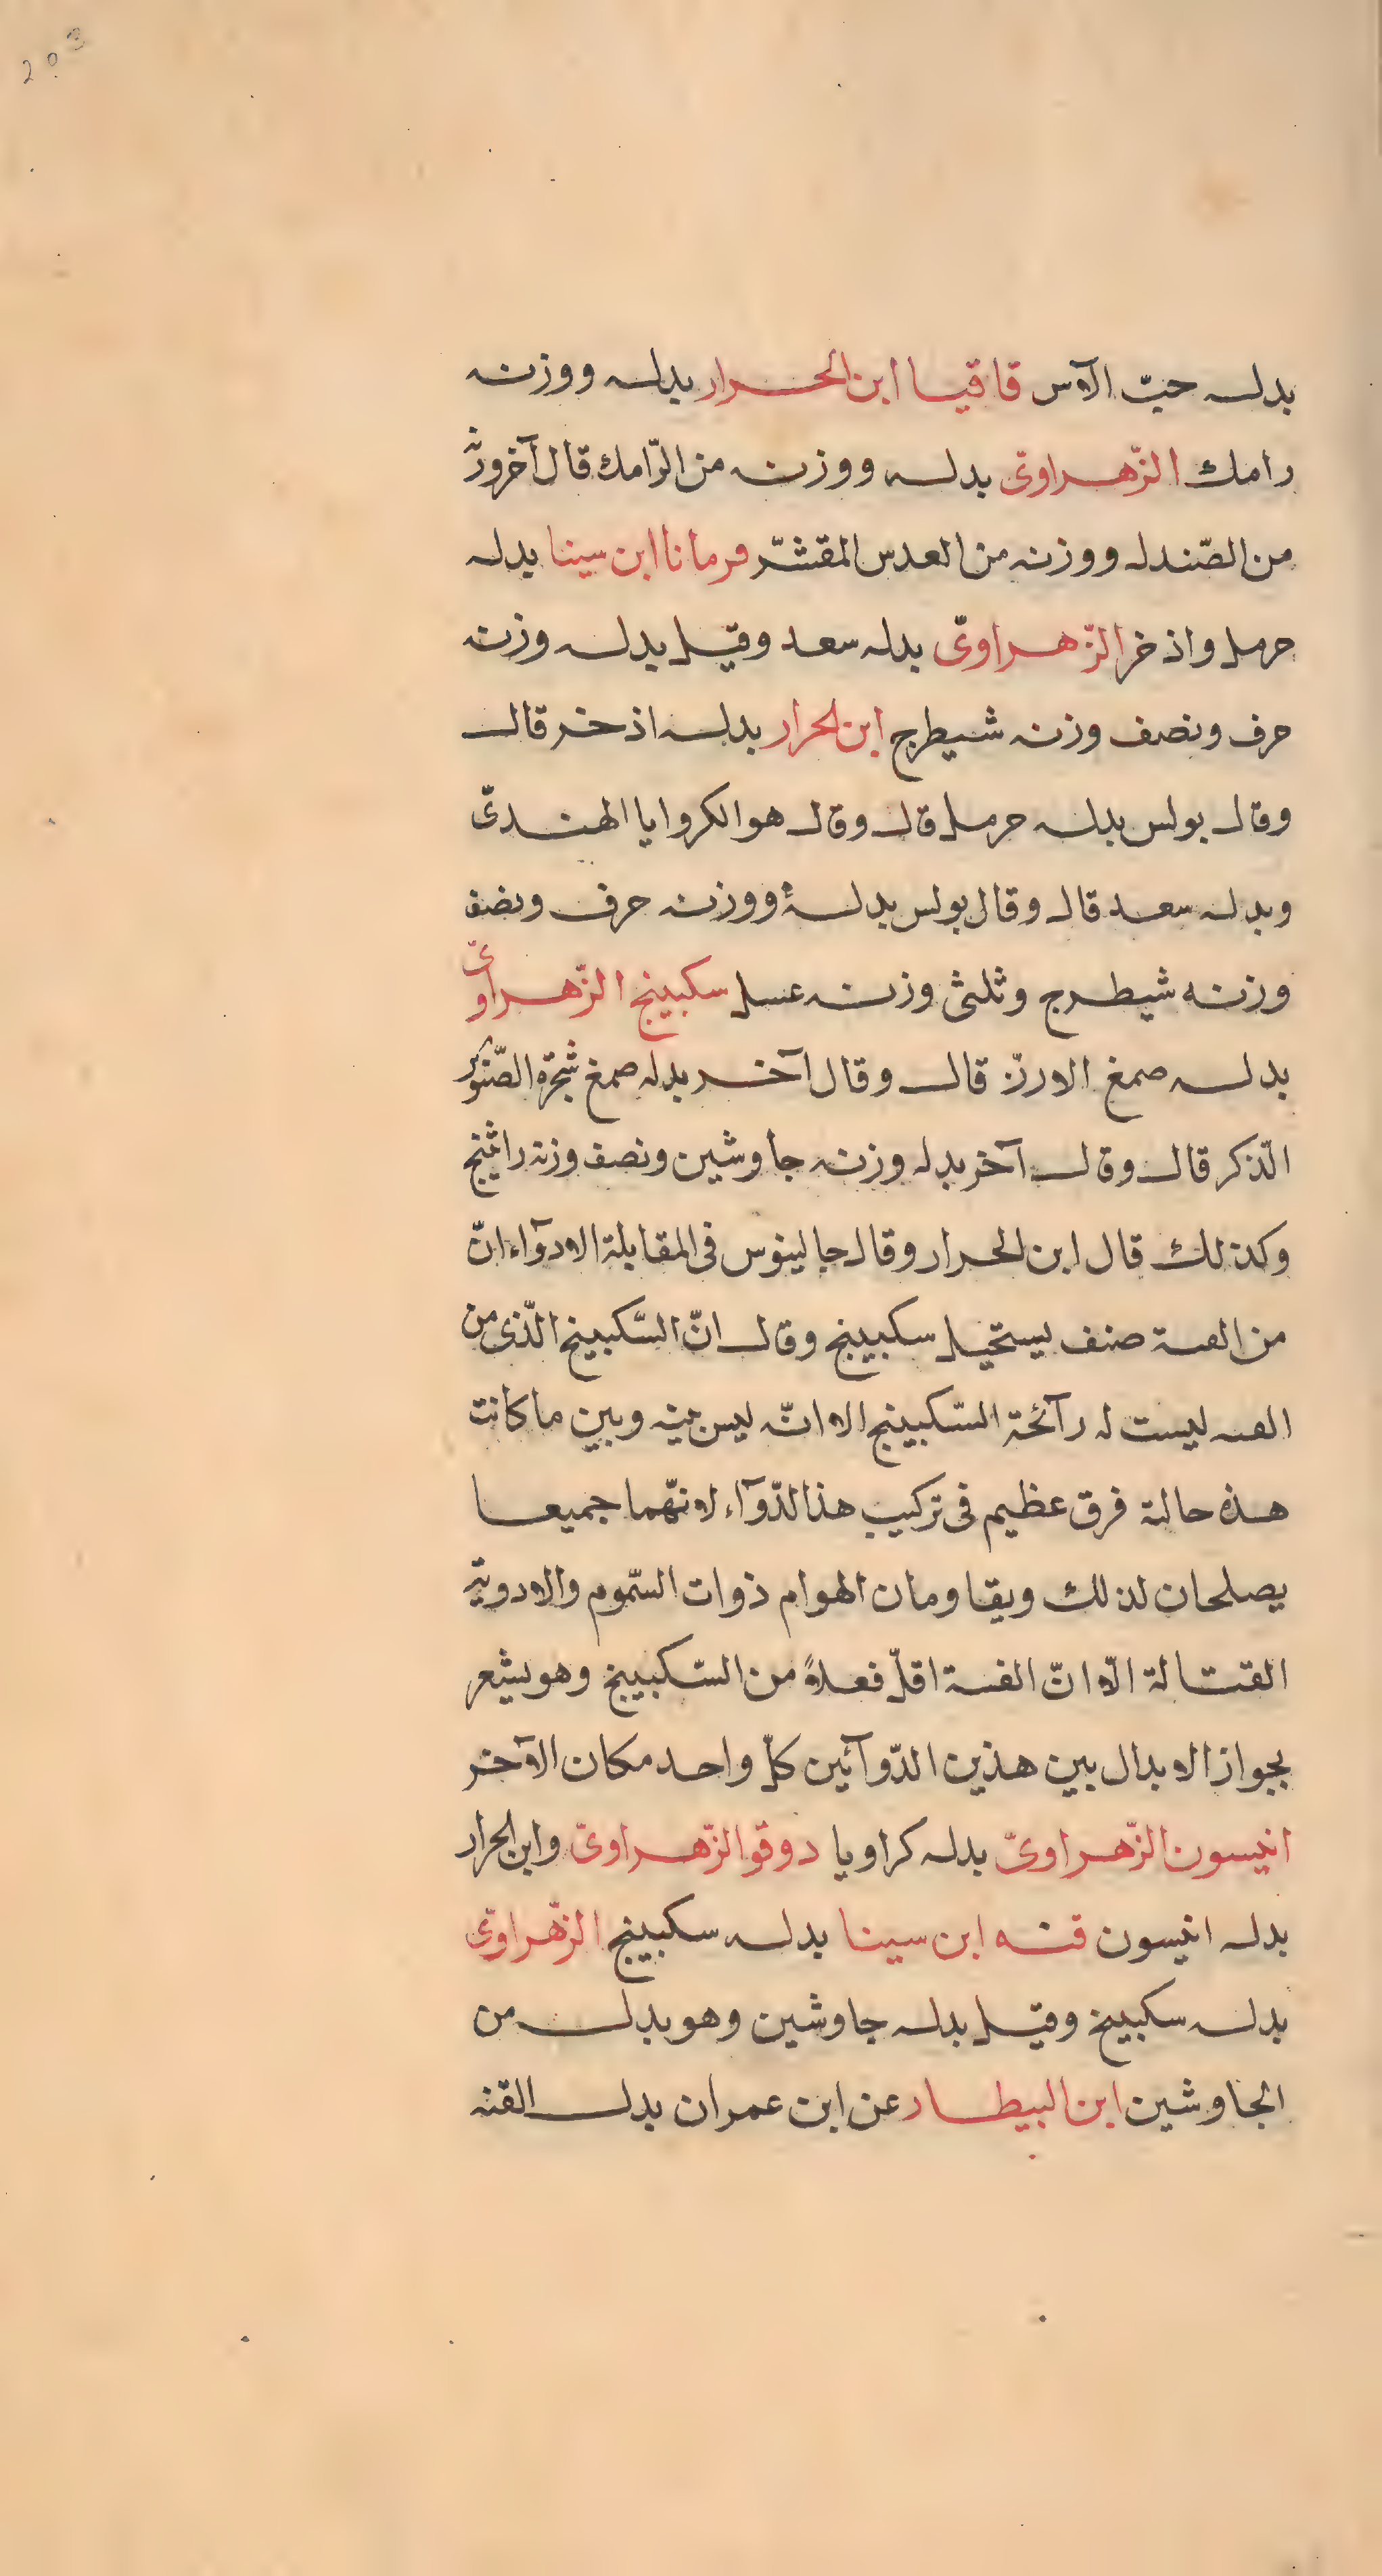 203
بدله حبّ الآس قاقيا ابن الحرار بدله ووزنه
رامك الزّهراوىّ بدله ووزنه من الرّامك قال آخر وزنه
من الصّندله ووزنه من العدس المقشّر فرمانا ابن سينا بدله
حرمل واذخر الزّهراوىّ بدله سعد وقيل بدله وزنه
حرف ونصف وزنه شيطرج ابن الحرار بدله اذخر قال
وقال بولس بدله حرمل قال وقال هو الكروايا الهندىّ
وبدله سعد قال وقال بولس بدله ووزنه حرف ونصف
وزنه شيطرج وثلثى وزنه عسل سكبينج الزّهراوىّ
بدله صمغ الارزّ قال وقال آخر بدله صمغ شجرة الصّنوبر
الذّكر قال وقال آخر بدله وزنه جاوشين ونصف وزنه راتينج
وكذلك قال ابن الحرار وقال جالينوس فى المقابلة الادوآء انّ
من العىىة صنف يستحيل سكبينج وقال انّ السّكبينج الّذى من
العىىه ليست له رآئحة السّكبينج الا انّه ليس بينه وبين ما كانت
هذه حالته فرق عظيم فى تركيب هذا الدّوآء لانّهما جميعا
يصلحان لذلك ويقاومان الهوام ذوات السّموم والادوية
القتالة الّا انّ الفىىة اقلّ فعلاً من السّكبينج وهو يشعر
بجواز الابدال بين هذين الدّوآئين كلّ واحد مكان الآخر
انيسون الزّهراوىّ بدله كراويا دوقوا الزّهراوىّ وابن الحرار
بدله انيسون قنه ابن سينا بدله سكبينج الزّهراوىّ
بدله سكبينج وقيل بدله جاوشين وهو بدل من
الجاوشين ابن البيطار عن ابن عمران بدل القنه